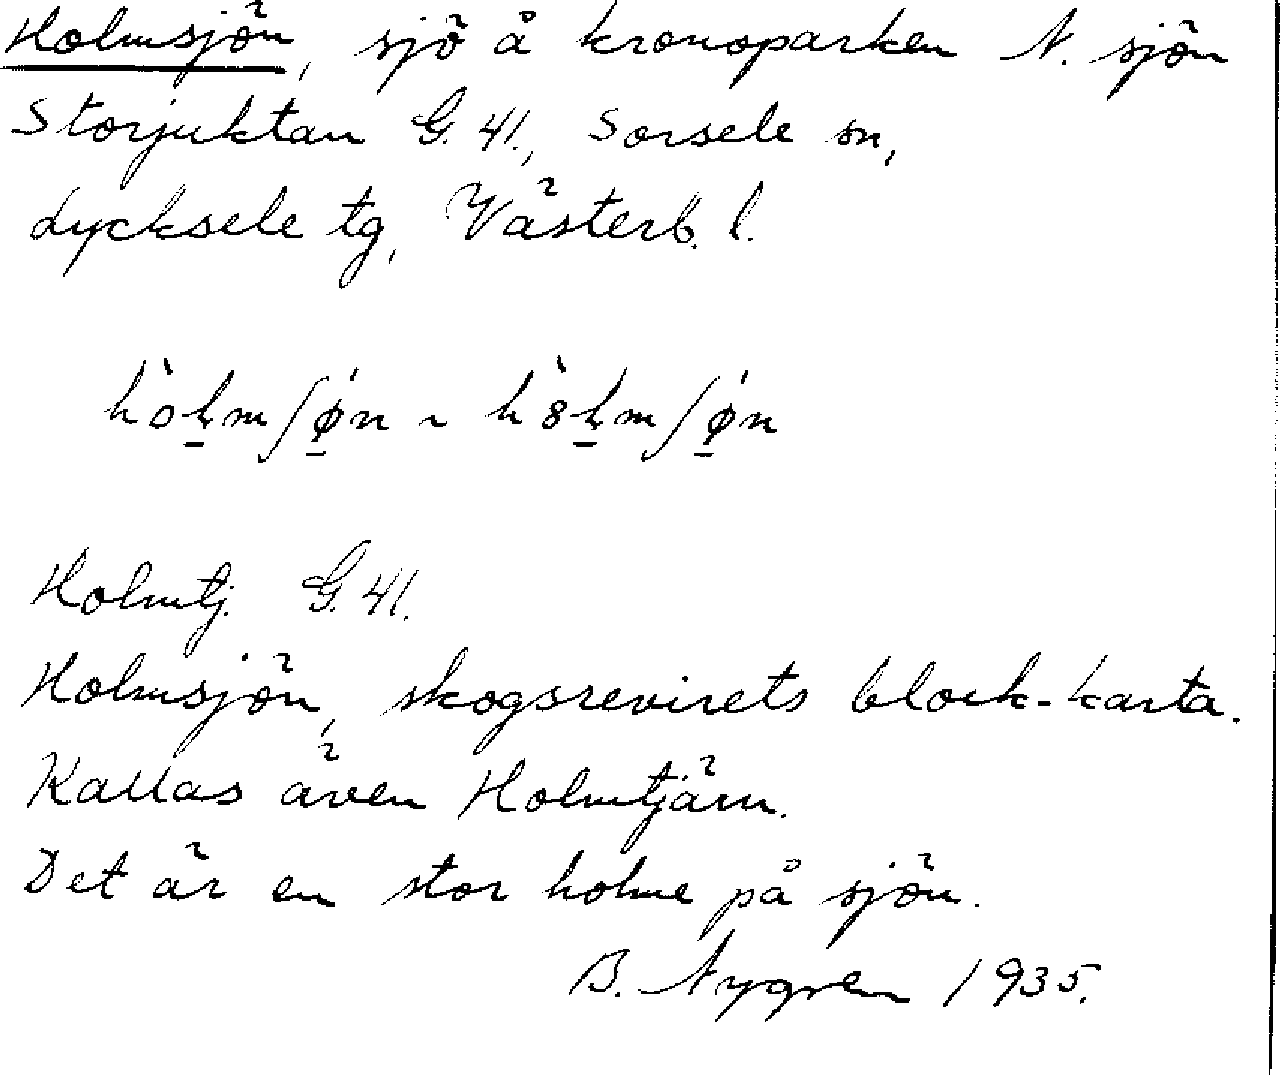 Holmsjön, sjö å kronoparken N. sjön
Storjuktan G. 41., Sorsele sn,
Lycksele tg, Västerb. l.
Holmtj. G. 41.
Holmsjön, skogsrevirets block-karta.
Kallas även Holmtjärn.
Det är en stor holme på sjön.
B. Nygren 1935.